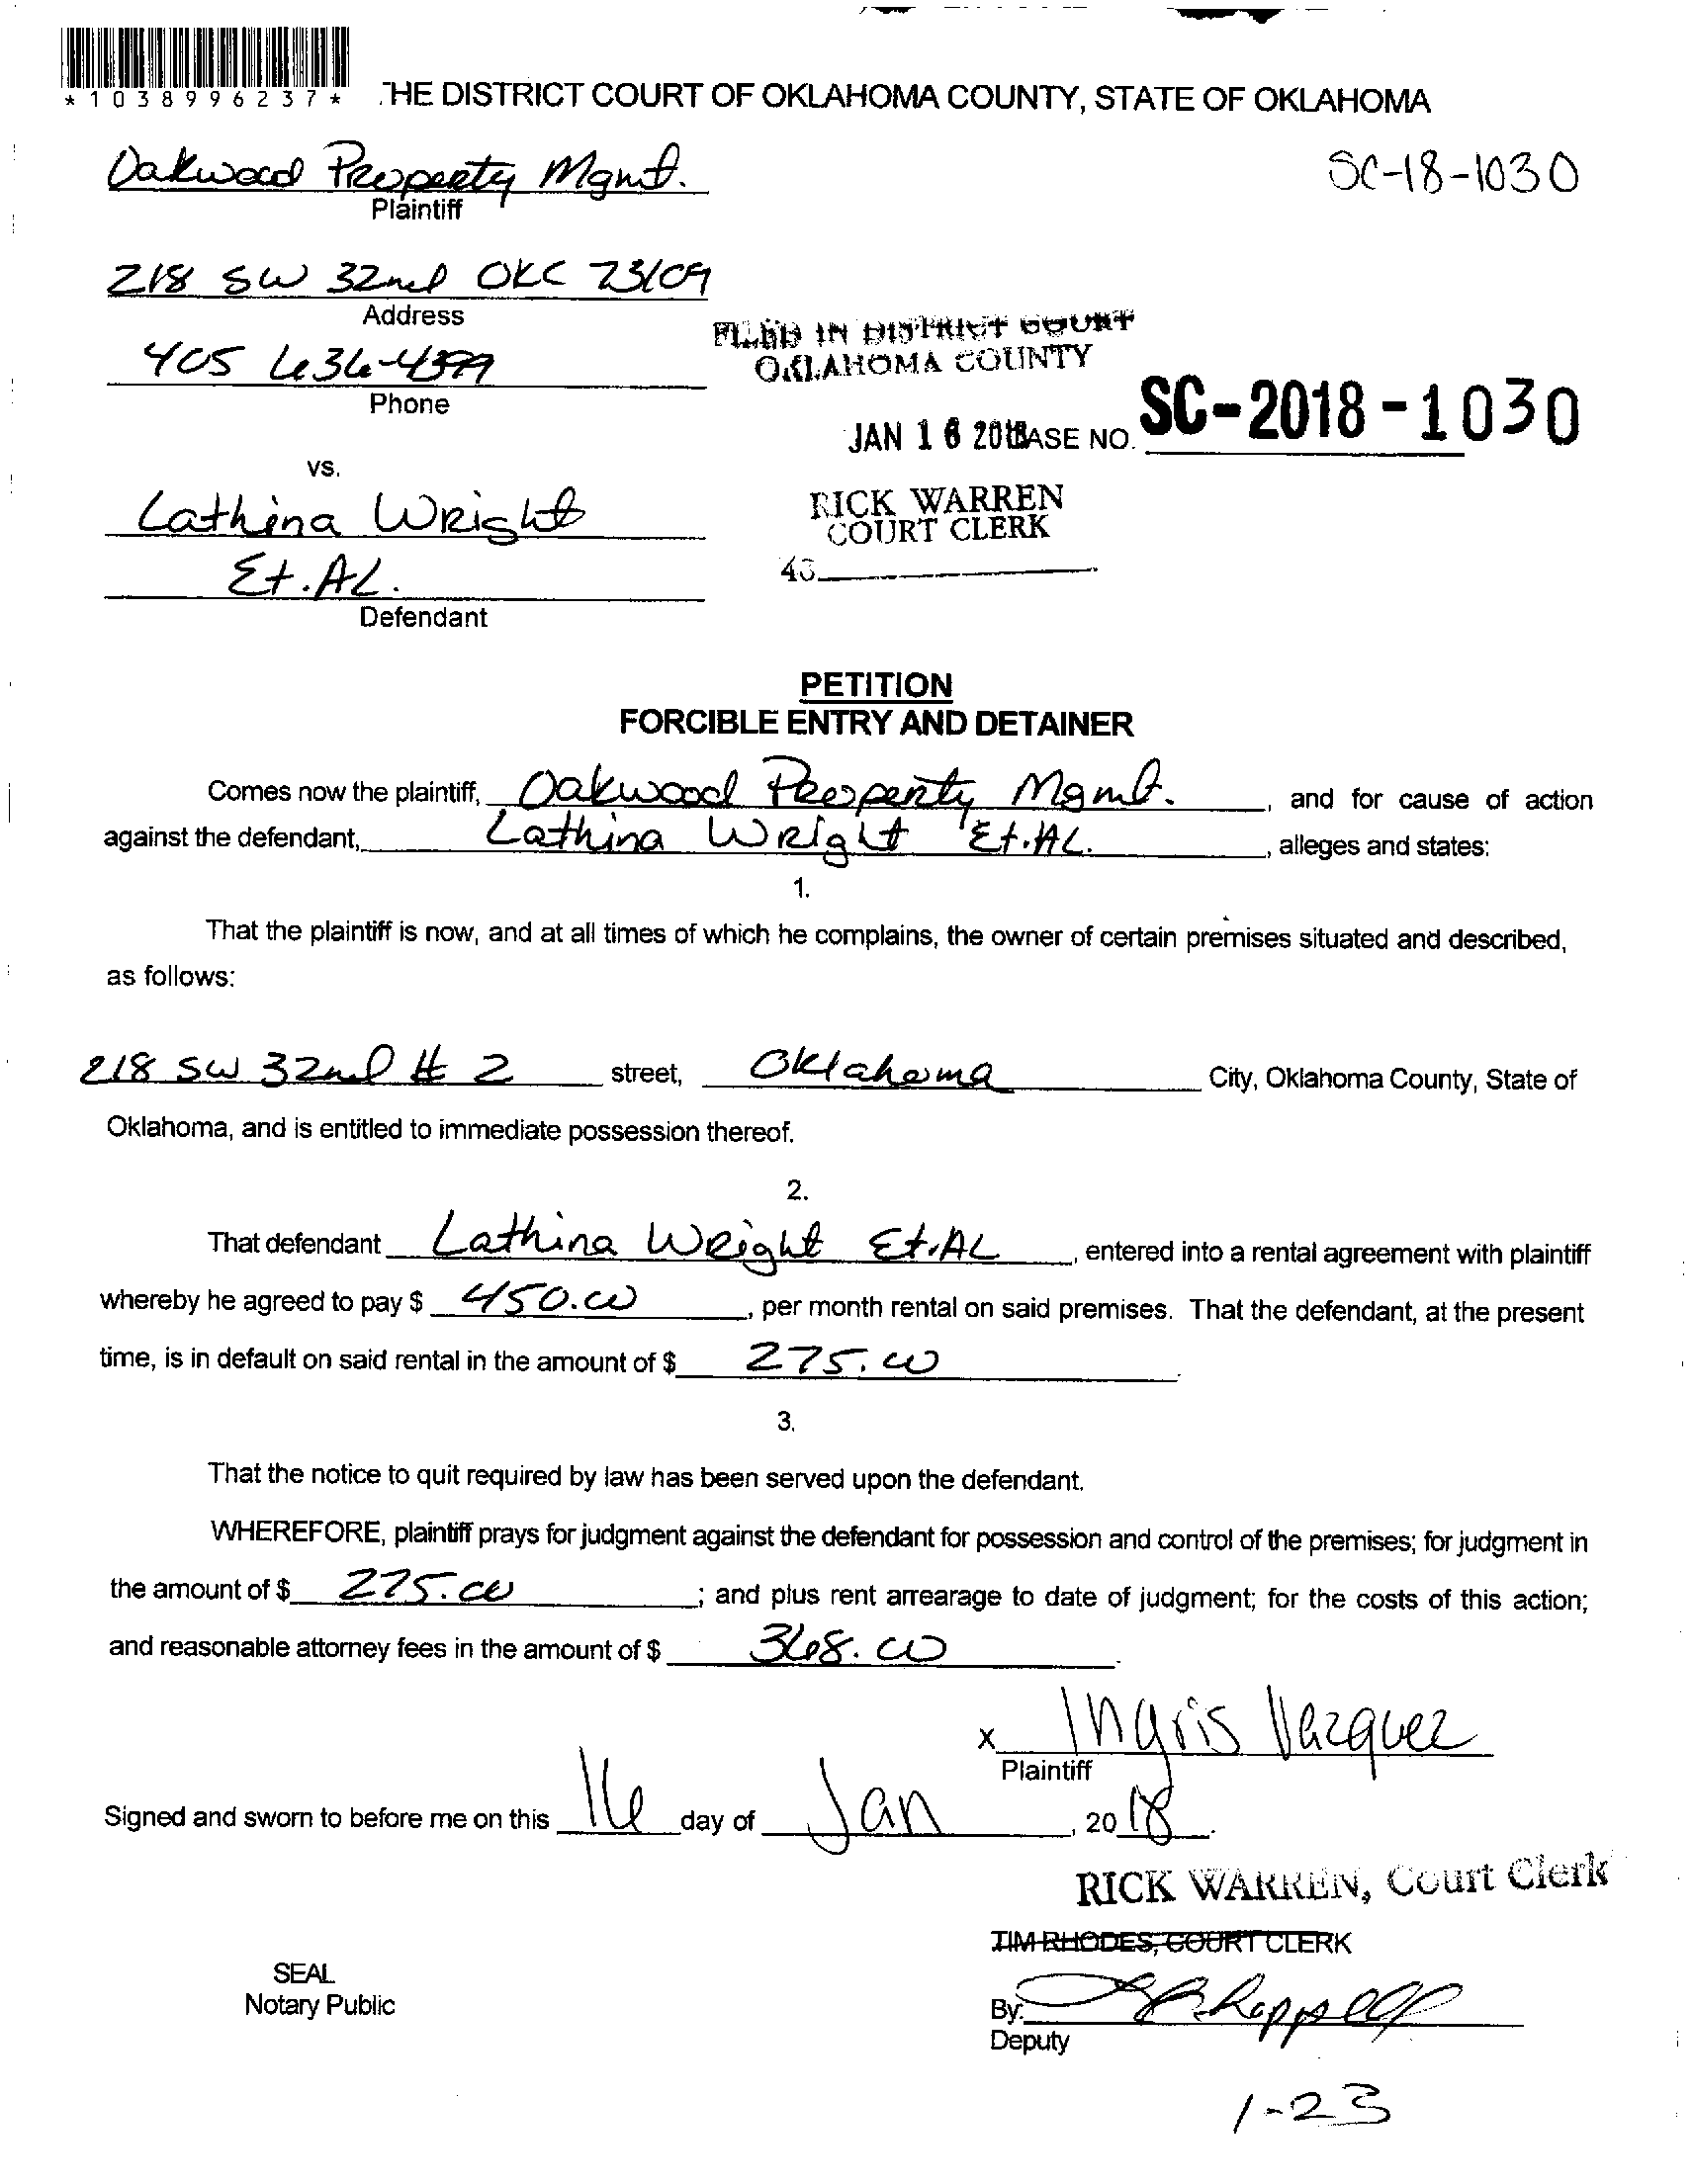 *1038996237*
THE DISTRICT COURT OF OKLAHOMA COUNTY, STATE OF OKLAHOMA
Oakwood Property Mgmt.
SC-18-1030
Plaintiff
218 SW 32nd OKC 73109
Address
FILED IN DISTRICT COURT
OKLAHOMA COUNTY
405 636-4399
Phone
JAN 16 2018
CASE NO. SC-2018-1030
vs.
Lathina Wright
RICK WARREN
COURT CLERK
Et.AL.
43
Defendant
PETITION
FORCIBLE ENTRY AND DETAINER
Comes now the plaintiff, Oakwood Property Mgmt., and for cause of action
against the defendant, Lathina Wright Et.AL., alleges and states:
1.
That the plaintiff is now, and at all times of which he complains, the owner of certain premises situated and described,
as follows:
218 SW 32nd # 2 street, Oklahoma City, Oklahoma County, State of
Oklahoma, and is entitled to immediate possession thereof.
2.
That defendant Lathina Wright Et.AL, entered into a rental agreement with plaintiff
whereby he agreed to pay $ 450.00, per month rental on said premises. That the defendant, at the present
time, is in default on said rental in the amount of $ 275.00.
3.
That the notice to quit required by law has been served upon the defendant.
WHEREFORE, plaintiff prays for judgment against the defendant for possession and control of the premises; for judgment in
the amount of $ 275.00; and plus rent arrearage to date of judgment; for the costs of this action;
and reasonable attorney fees in the amount of $ 368.00.
x Ingris Vazquez
Plaintiff
Signed and sworn to before me on this 16 day of Jan, 2018.
RICK WARREN, Court Clerk
TIM RHODES, COURT CLERK
SEAL
Notary Public
By:
Deputy
1-23